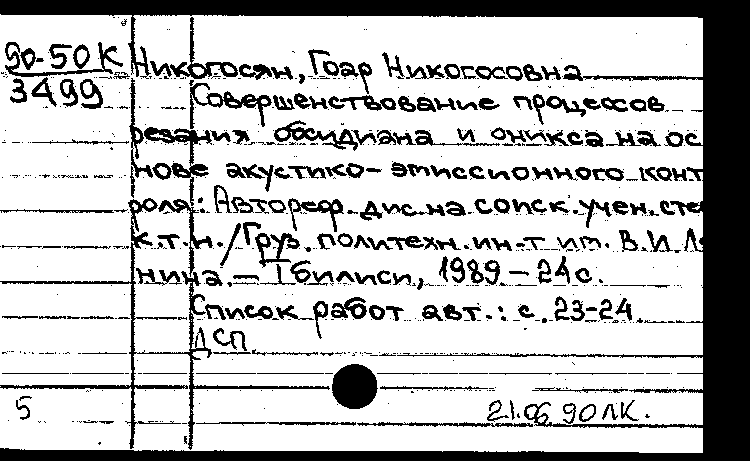 90-50К
3499
Никогосян, Гоар Никогосовна
Совершенствование процессов
резания обсидиана и оникса на ос
нове акустико-эмиссионного конт
роля: Автореф. дис. на соиск. учен. сте
к.т.н. / Груз. политехн. ин-т им. В.И. Ле
нина. — Тбилиси, 1989 — 24 с.
Список работ авт.: с. 23-24.
ДСП
5
21.06.90 ЛК.